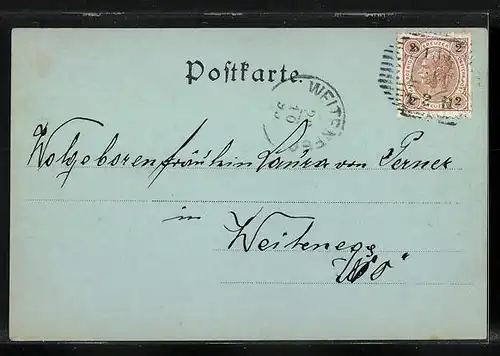 Postkarte.
WEITENEGG
Wolgeboren Fräulein Laura von Perner
in
Weitenegg